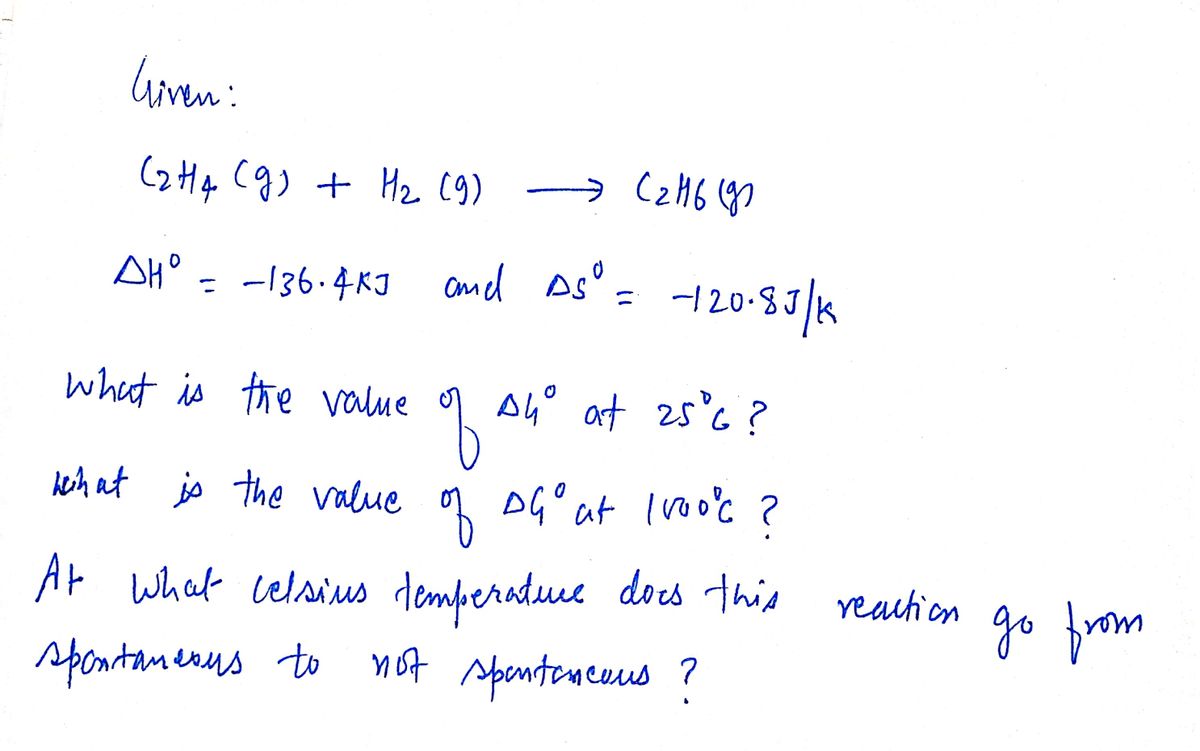 Given:
C2H4 (g) + H2 (g) → C2H6 (g)
ΔH° = -136.4KJ and ΔS° = -120.8J/K
What is the value of ΔG° at 25°C ?
what is the value of ΔG° at 1000°C ?
At what celsius temperature does this reaction go from
spontaneous to not spontaneous ?